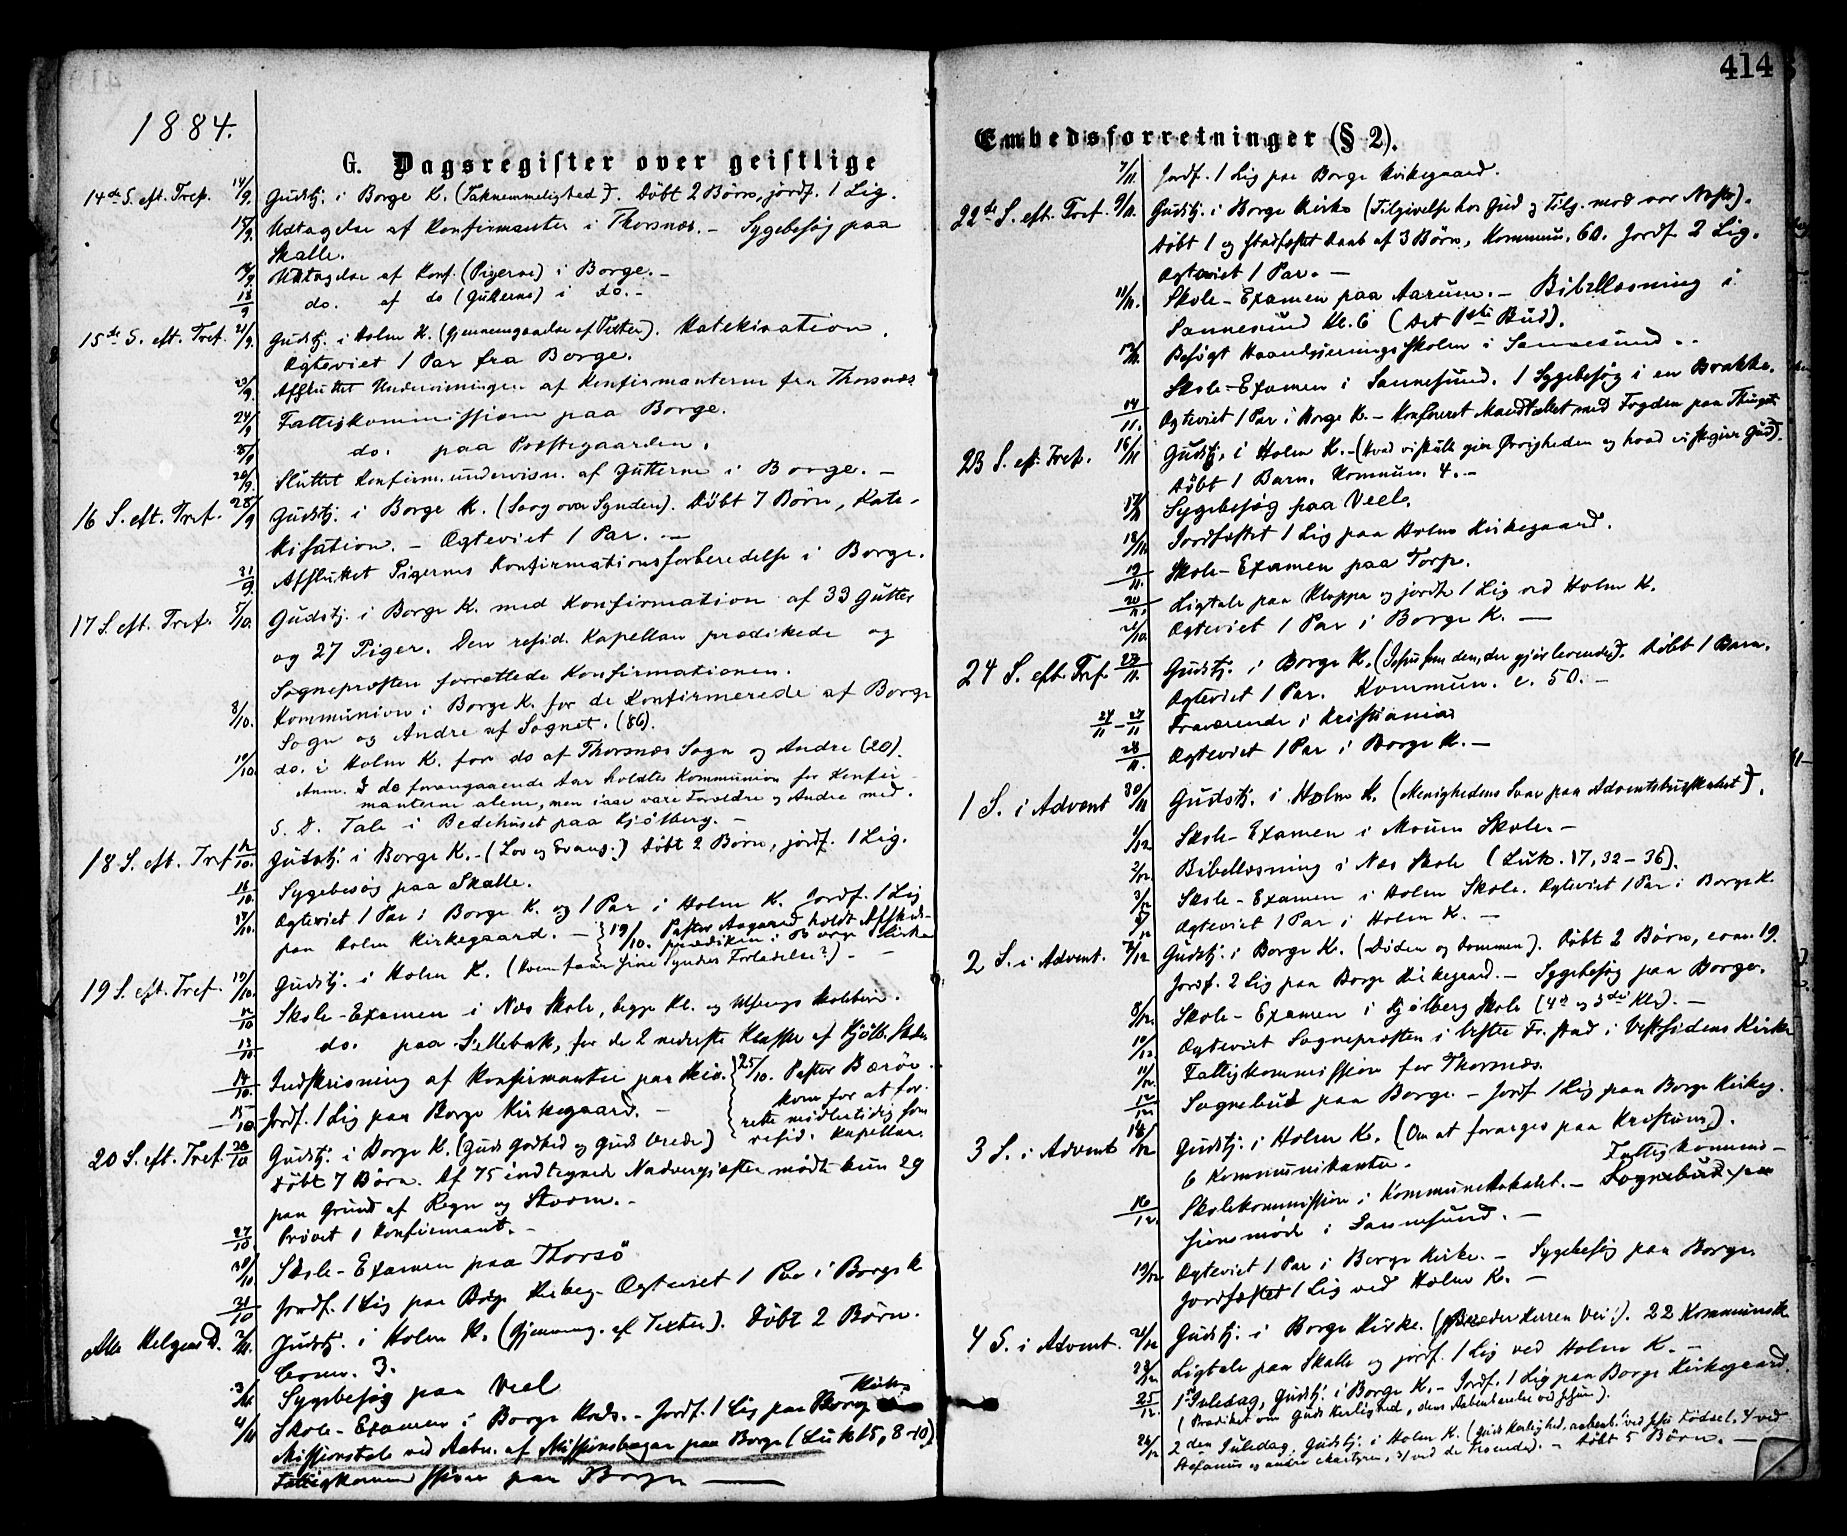 414
1884.
G. Dagsregister over geistlige
14de S. eft. Tref. 14/9. Gudstj. i Borge K. (Taknemmelighed). Døbt 2 Børn, jordf. 1 Lig.
15/9. Udtagelse af Konfirmanter i Thorsnæs. – Sygebesøg paa
Skalle.
Udtagelse af Konf. (Pigerne) i Borge. –
18/9 do. af do (Gutterne) i do. –
15de S. eft. Tref. 21/9. Gudstj. i Holm K. (Gjennemgaaelse af Texten). Katekisation.
Ægteviet 1 Par fra Borge.
23/9. Afsluttet Undervisningen af Konfirmanterne fra Thorsnæs
24/9 Fattigkommission paa Borge.
do. paa Præstegaarden.
26/9. Sluttet Konfirm.undervisn. af Gutterne i Borge. –
16 S. eft. Tref. 28/9 Gudstj. i Borge K. (Sorg over Synden). Døbt 7 Børn, Kate-
kisation. – Ægteviet 1 Par. –
Afsluttet Pigernes Konfirmationsforberedelse i Borge.
17 S. eft. Tref. 5/10. Gudstj. i Borge K. med Konfirmation af 33 Gutter
og 27 Piger. Den resid. Kapellan prædikede og
Sognepræsten forrettede Konfirmationen.
8/10. Kommunion i Borge K. for de Konfirmerede af Borge
Sogn og Andre af Sognet. (86).
10/10. do. i Holm K. for do af Thorsnæs Sogn og Andre (20).
Anm. I de foregaaende Aar holdtes Kommunion for Konfir-
manterne alene, men iaar vare Forældre og Andre med.
S. D. Tale i Bedehuset paa Kjølberg. –
18 S. eft. Tref. 12/10. Gudstj. i Borge K. – (Lov og Evang.) Døbt 2 Børn, jordf. 1 Lig.
16/10. Sygebesøg paa Skalle.
17/10. Ægteviet 1 Par i Borge K. og 1 Par i Holm K. Jordf. 1 Lig
paa Holm Kirkegaard. – 19/10. Pastor Aagaard holdt Afskeds-
prædiken i Borge Kirke
19 S. eft. Tref. 19/10. Gudstj. i Holm K. (Hvem faaer sine Synders Forladelse?) –
Skole-Examen i Næs Skole, begge Kl. og
do. paa Sellebak, for de 2 nederste Klasser af Kjølb. Skole
14/10. Indskrivning af Konfirmanter paa 25/10. Pastor Bærøe
15/10 Jordf. 1 Lig paa Borge Kirkegaard. – kom for at for-
rette midlertidig som
resid. Kapellan.
20 S. eft. Tref. 26/10 Gudstj. i Borge K. (Guds Godhed og Guds Vrede)
Døbt 7 Børn. Af 75 indtegnede Nadvergjæster mødte kun 29
paa Grund af Regn og Storm. –
27/10. Prøvet 1 Konfirmant. –
30/10 Skole-Examen paa Thorsø
31/10 Jordf. 1 Lig paa Borge Kirkeg. Ægteviet 1 Par i Borge K
Alle Helgens D. 2/11. Gudstj. i Holm K. (Gjennemg. af Texten). Døbt 2 Børn.
Comm. 3.
3/11. Sygebesøg paa Veel
4/11 Skole-Examen i Borge Kreds. – Jordf. 1 Lig paa Borg Kirkeg
Missionstale ved Aabn. af Missionsbazar paa Borge (Luk 15, 8-10)
Fattigkommission paa Borge
Embedsforretninger (§ 2).
7/11. Jordf. 1 Lig paa Borge Kirkegaard.
22de S. eft. Tref. 9/11. Gudstj. i Borge Kirke (Tilgivelse hos Gud og Tilg. mod vor Næste).
Døbt 1 og stadfæstet Daab af 3 Børn, Kommun. 60. Jordf. 2 Lig.
Ægteviet 1 Par. –
11/11. Skole-Examen paa Aarum. – Bibellæsning i
Sannesund Kl. 6 (Det 1ste Bud).
12/11. Besøgt Haandgjerningsskolen i Sannesund. –
Skole-Examen i Sannesund. 1 Sygebesøg i en Brakke.
14/11. Ægteviet 1 Par i Borge K. – Konfereret Mandtallet med Fogden paa Thinget
23 S. eft. Tref. 16/11 Gudstj. i Holm K. – (Hvad vi skulle give Øvrigheden og hvad vi skgive Gud).
Døbt 1 Barn. Kommun. 4. –
17/11 Sygebesøg paa Veel.
18/11. Jordfæstet 1 Lig paa Holms Kirkegaard.
19/11. Skole-Examen paa Torp.
20/11. Ligtale paa Kloppa og jordf. 1 Lig ved Holm K.
Ægteviet 1 Par i Borge K. –
24 S. eft. Tref. 23/11. Gudstj. i Borge K. (Jesus som den, der gjør levende). Døbt 1 Barn.
Ægteviet 1 Par. Kommun. c. 50. –
24/11 – 27/11 Fraværende i Kristiania
28/11. Ægteviet 1 Par i Borge K. –
1 S. i Advent 30/11 Gudstj. i Holm K. (Menighedens Svar paa Adventsbudskabet).
1/12 Skole-Examen i Moum Skole. –
2/12. Bibellæsning i Næs Skole (Luk. 17, 32-36).
3/12 Skole-Examen i Holm Skole. Ægteviet 1 Par i Borge K.
5/12 Ægteviet 1 Par i Holm K. –
2 S. i Advent. 7/12 Gudstj. i Borge K. (Døden og Dommen). Døbt 2 Børn, com. 19.
Jordf. 2 Lig paa Borge Kirkegaard. – Sygebesøg paa Borge.
8/12. Skole-Examen i Kjølberg Skole (4de og 3die Kl.). –
10/12. Ægteviet Sognepræsten i Vestre Fr.stad i Vestsidens Kirke
11/12. Fattigkommission for Thorsnæs.
12/12 Sognebud paa Borge. – Jordf. 1 Lig paa Borge Kirkeg.
3 S. i Advent 14/12 Gudstj. i Holm K. (Om at forarges paa Kristum).
6 Kommunikanter. Fattigkomms-
16/12. Skolekommission i Kommunelokalet. – Sognebud paa
sionsmøde i Sannesund. –
19/12 Ægteviet 1 Par i Borge Kirke. – Sygebesøg paa Borge.
Jordfæstet 1 Lig ved Holm K. –
4 S. i Advent. 21/12 Gudstj. i Borge Kirke. (Bereder Herren Vei!). 22 Kommunik.
23/12 Ligtale paa Skalle og jordf. 1 Lig ved Holm K. –
25/12. 1ste Juledag, Gudstj. i Borge K. – Jordf. 1 Lig paa Borge Kirkegaard.
(Prædiket om Guds Kerlighed, dens Aabenbarelse ved Jesum).
26/12 2den Juledag, Gudstj. i Holm K. (Guds Kerlighed, aabenb. 1/ ved Jesu Fødsel, 2/ ved
Stefanus og andre Martyrer, 3/ ved de Troende). – Døbt 5 Børn. –